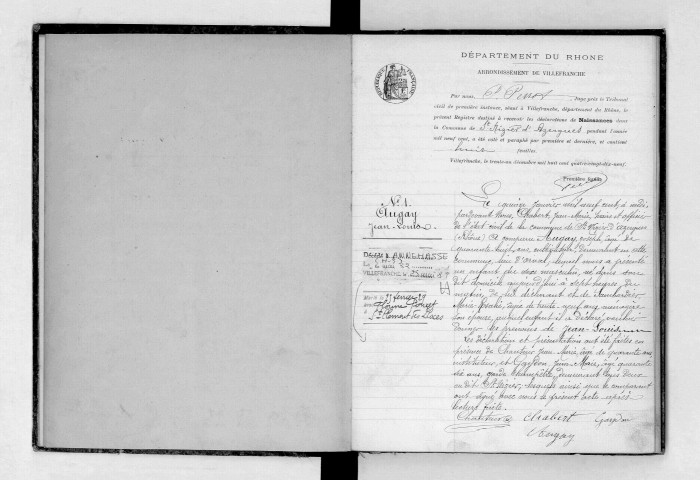 DÉPARTEMENT DU RHONE
ARRONDISSEMENT DE VILLEFRANCHE
RÉPUBLIQUE FRANÇAISE
Par nous, Juge près le Tribunal
civil de première instance, séant à Villefranche, département du Rhône, le
présent Registre destiné à recevoir les déclarations de Naissances dans
la Commune de St Nizier d'Azergues pendant l'année
mil neuf cent, a été coté et paraphé par première et dernière, et contient
feuilles.
Villefranche, le trente-un décembre mil huit cent quatre-vingt-dix-neuf.
Première feuille
N° 1.
Augay
Jean-Louis.
ANNEMASSE
VILLEFRANCHE
Le quinze janvier mil neuf cent, à midi,
pardevant Nous, Chabert, Jean-Marie, Maire et officier
de l'état civil de la commune de St Nizier d'Azergues
(Rhône) est comparu Augay, Joseph, âgé de
quarante huit ans, cultivateur, demeurant en cette
commune, lequel nous a présenté
un enfant du sexe masculin, né dans son
dit domicile aujourd'hui à sept heures du
matin, de lui déclarant et de
Marie, âgée de trente neuf ans, ménagère
son épouse, auquel enfant il a déclaré vouloir
donner les prénoms de Jean-Louis
Les déclaration et présentation ont été faites en
présence de Jean Marie, âgé de quarante ans
instituteur, et Jean-Marie, âgé quarante
ans, garde champêtre, demeurant tous deux
en dit St Nizier, lesquels ainsi que le comparant
ont signé avec nous le présent acte après
lecture faite.
Chabert
Augay